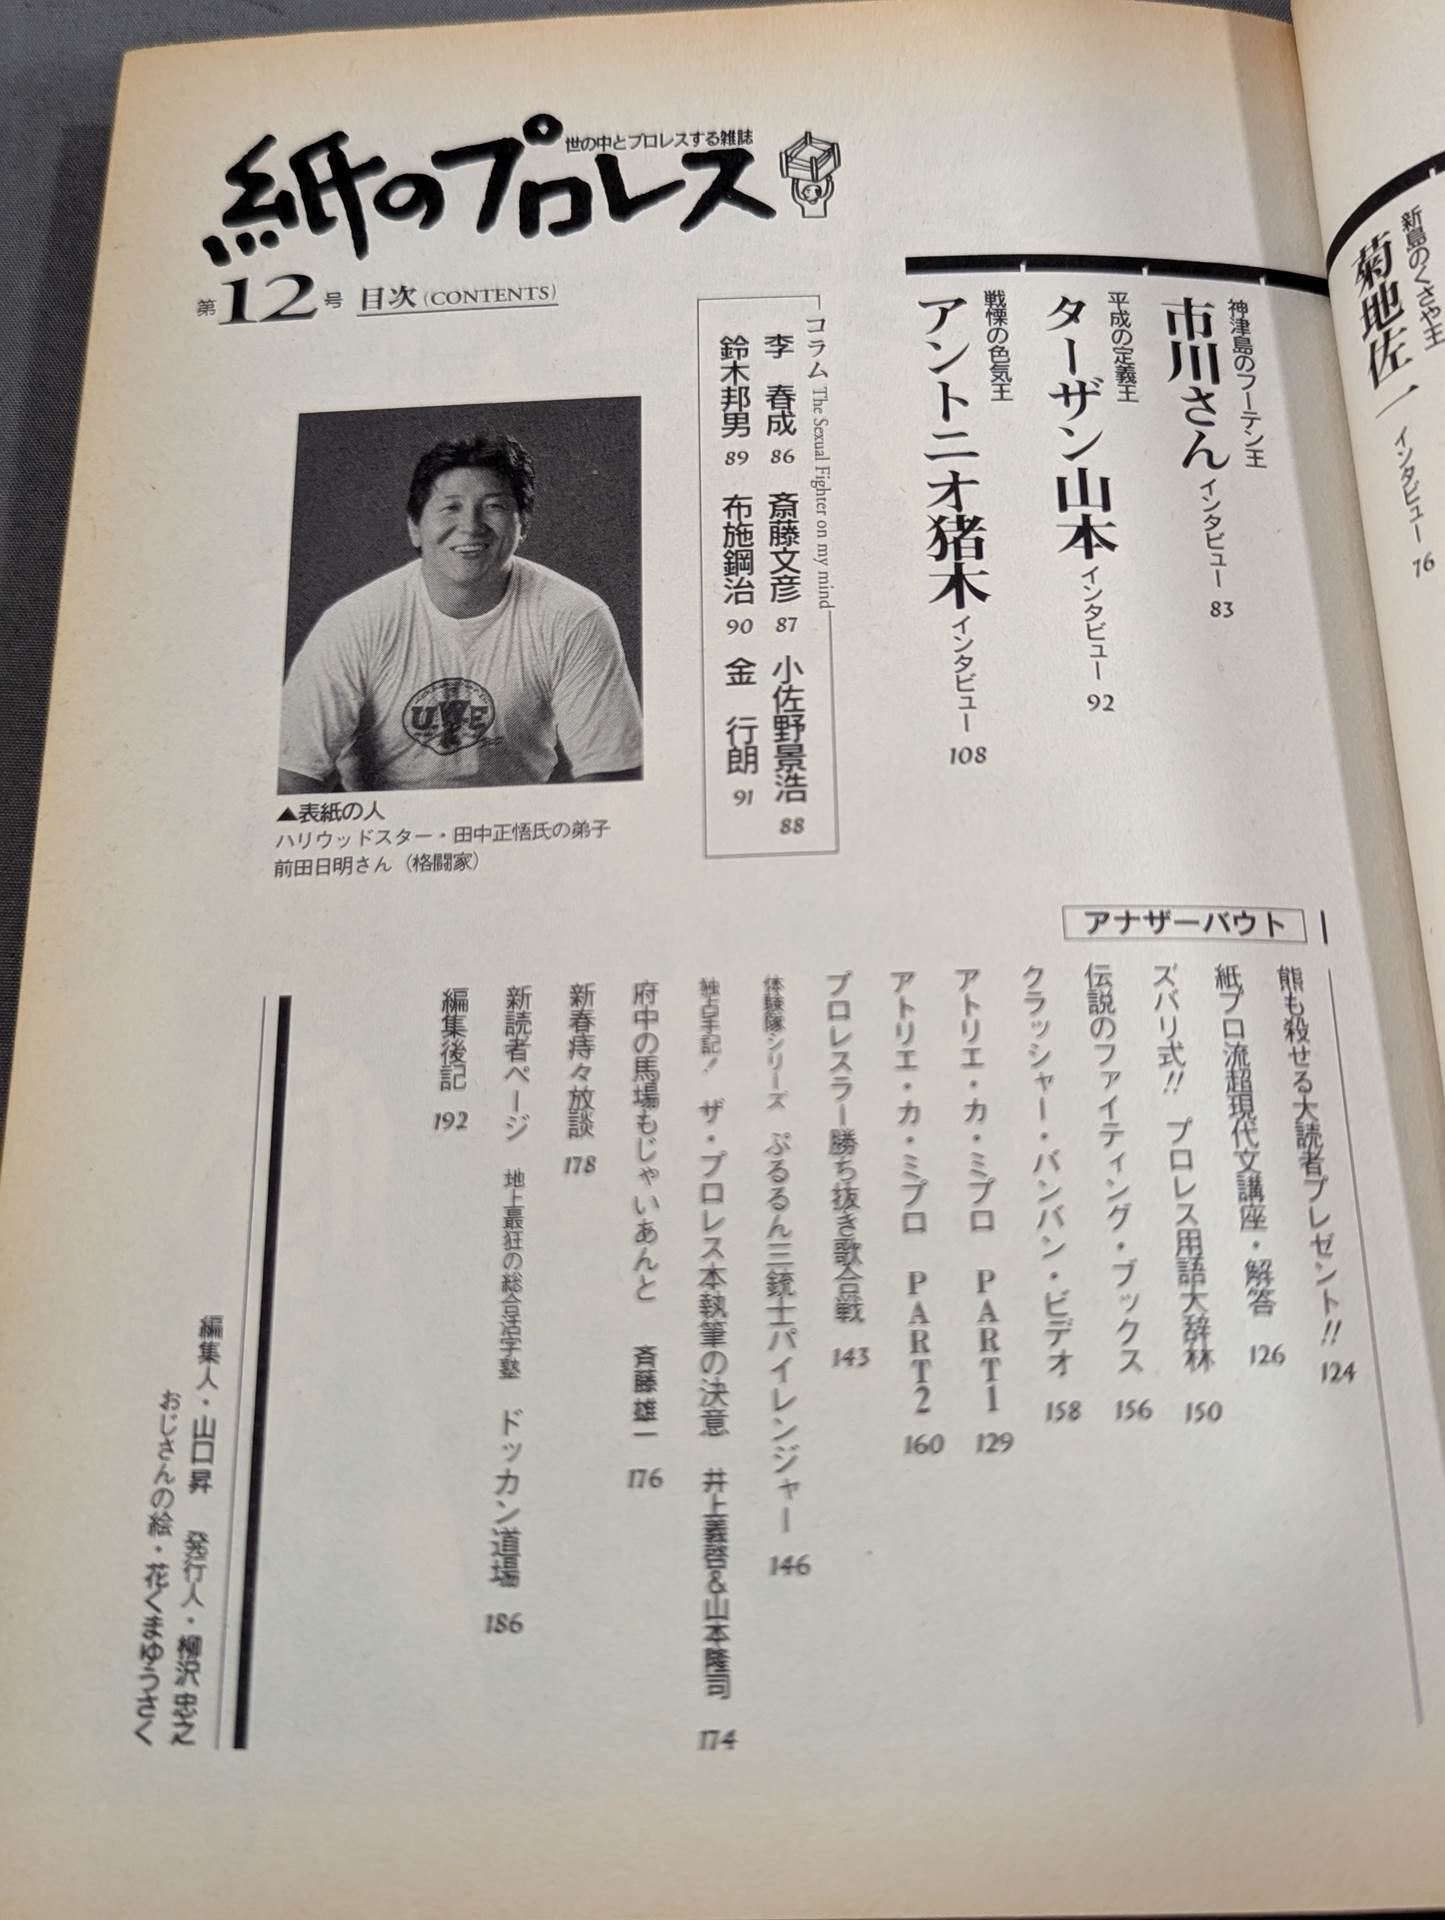 世の中とプロレスする雑誌
紙のプロレス
第12号 目次 (CONTENTS)
新島のくさや王
菊地佐一 インタビュー 76
神津島のフーテン王
市川さん インタビュー 83
平成の定義王
ターザン山本 インタビュー 92
戦慄の色気王
アントニオ猪木 インタビュー 108
コラム The Sexual Fighter on my mind
李 春成 86 斎藤文彦 87 小佐野景浩 88
鈴木邦男 89 布施鋼治 90 金 行朗 91
UWF
▲表紙の人
ハリウッドスター・田中正悟氏の弟子
前田日明さん（格闘家）
アナザーバウト
熊も殺せる大読者プレゼント!! 124
紙プロ流超現代文講座・解答 126
ズバリ式!! プロレス用語大辞林 150
伝説のファイティング・ブックス 156
クラッシャー・バンバン・ビデオ 158
アトリエ・カ・ミプロ PART1 129
アトリエ・カ・ミプロ PART2 160
プロレスラー勝ち抜き歌合戦 143
体験隊シリーズ ぷるるん三銃士パイレンジャー 146
独占手記! ザ・プロレス本執筆の決意 井上義啓&山本隆司 174
府中の馬場もじゃいあんと 斉藤雄一 176
新春痔々放談 178
新読者ページ 地上最狂の総合活字塾 ドッカン道場 186
編集後記 192
編集人・山口昇 発行人・柳沢忠之
おじさんの絵・花くまゆうさく